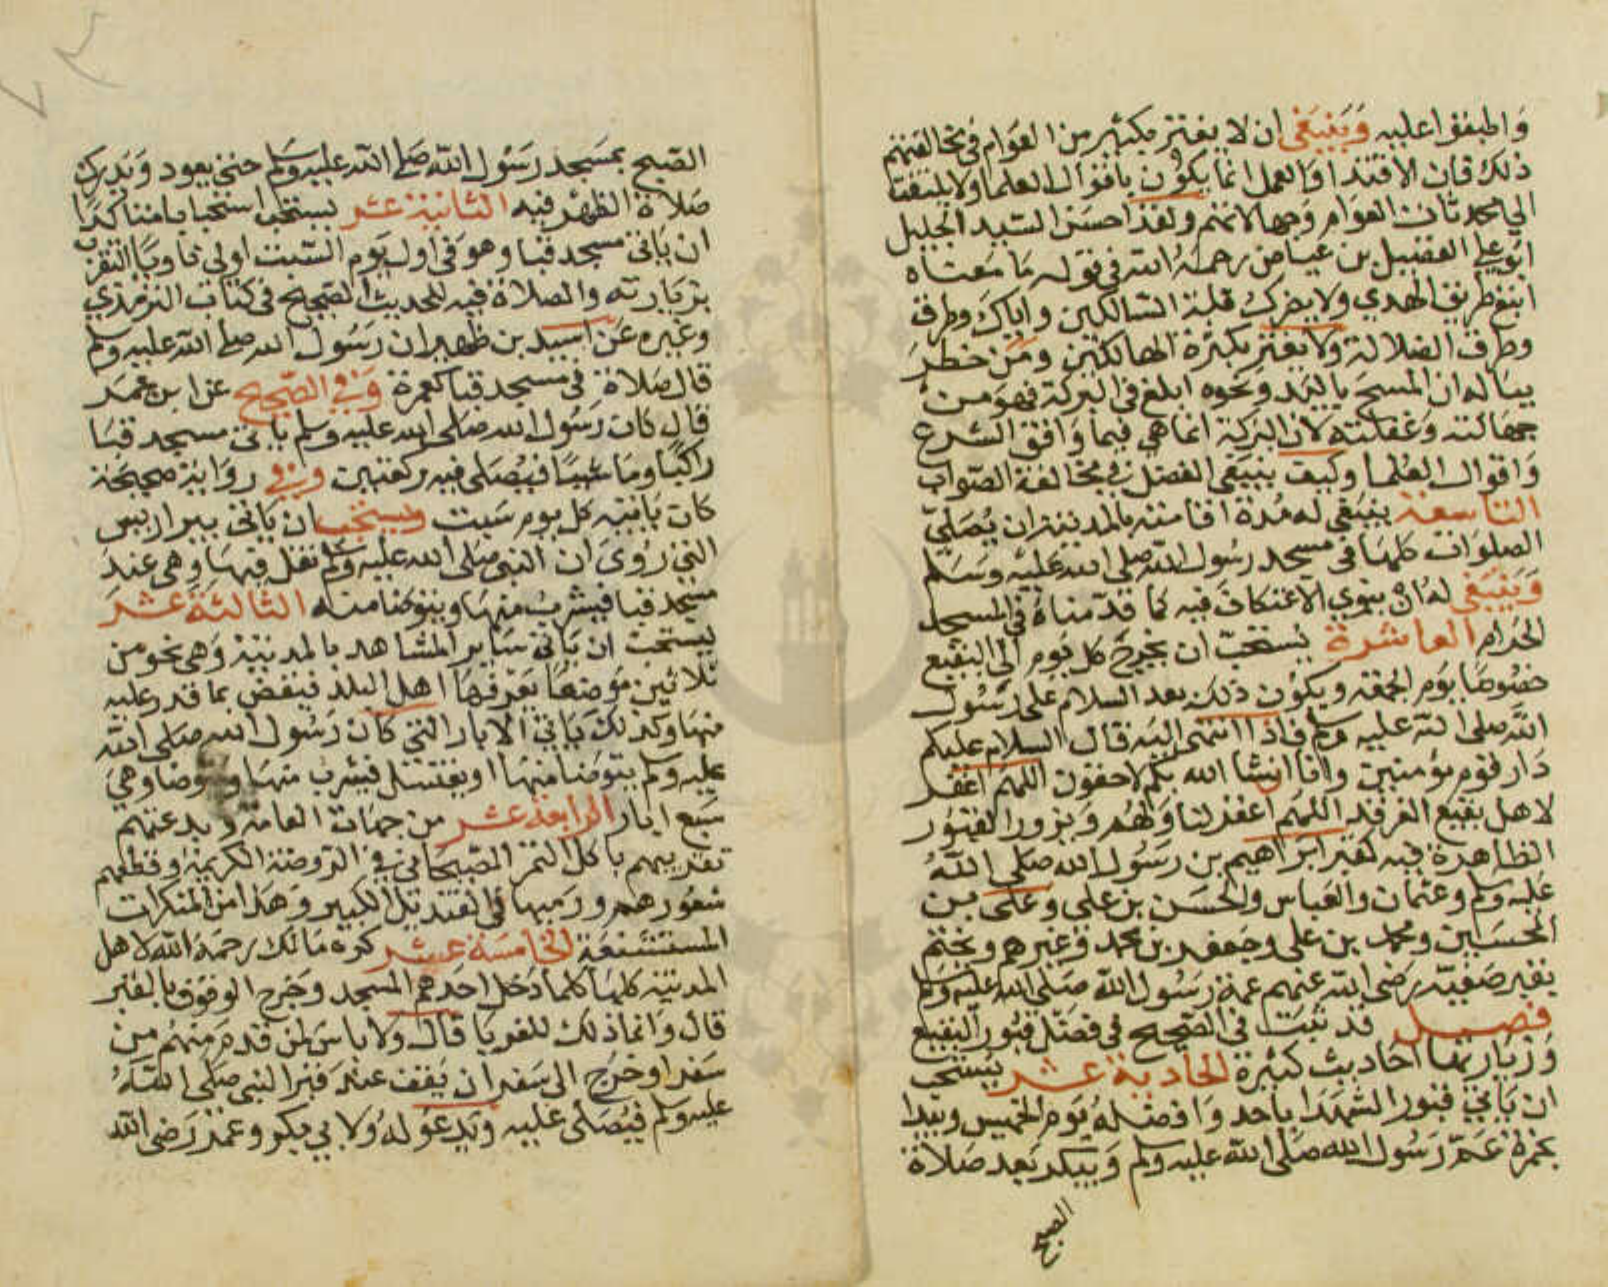 واطبقوا عليه وينبغي ان لا يغتر بكثير من العوام في مخالفتهم
ذلك فان الاقتدا والعمل انما يكون باقوال العلما ولا يلتفت
الي محدثات العوام وجهالاتهم ولقد احسن السيد الجليل
ابو علي الفضيل بن عياض رحمه الله في قوله ما معناه
اتبع طريق الهدي ولا يضرك قلة السالكين واياك وطرق
وطرق الضلالة ولا يغتر بكثرة الهالكين ومن خطر
بباله ان المسح باليد ونحوه ابلغ في البركة فهو من
جهالته وغفلته لان البركة انما هي فيما وافق الشرع
واقوال العلما وكيف يبتغي الفضل في مخالفة الصواب
التاسعة ينبغي له مدة اقامته بالمدينة ان يصلي
الصلوات كلها في مسجد رسول الله صلى الله عليه وسلم
وينبغي له ان ينوي الاعتكاف فيه كما قدمناه في المسجد
الحرام العاشرة يستحب ان يخرج كل يوم الي البقيع
خصوصا يوم الجمعة ويكون ذلك بعد السلام على رسول
الله صلى الله عليه وسلم فاذا انتهى اليه قال السلام عليكم
دار قوم مؤمنين وانا انشا الله بكم لاحقون اللهم اغفر
لاهل بقيع الغرقد اللهم اغفر لنا ولهم ويزور القبور
الظاهرة فيه كقبر ابراهيم بن رسول الله صلى الله
عليه وسلم وعثمان والعباس والحسن بن علي وعلى بن
الحسين ومحمد بن علي وجعفر بن محمد وغيرهم ويختم
بقبر صفية رضي الله عنهم عمة رسول الله صلى الله عليه وسلم
فصل قد ثبت في الصحيح في فضل قبور البقيع
وزيارتها احاديث كثيرة الحادية عشر يستحب
ان ياتي قبور الشهدا باحد وافضله يوم الخميس ويبدا
بحمزة عم رسول الله صلى الله عليه وسلم ويبكر بعد صلاة
الصبح
الصبح بمسجد رسول الله صلى الله عليه وسلم حتى يعود ويدرك
صلاة الظهر فيه الثانية عشر يستحب استحبابا متاكدا
ان ياتي مسجد قبا وهو في اول يوم السبت اولي ناويا التقرب
بزيارته والصلاة فيه للحديث الصحيح في كتاب الترمذي
وغيره عن اسيد بن ظهير ان رسول الله صلى الله عليه وسلم
قال صلاة في مسجد قبا كعمرة وفي الصحيح عن ابن عمر
قال كان رسول الله صلى الله عليه وسلم ياتي مسجد قبا
راكبا وماشيا فيصلي فيه ركعتين وفي رواية صحيحة
كان ياتيه كل يوم سبت ويستحب ان ياتي بير اريس
التي روى ان النبي صلى الله عليه وسلم تفل فيها وهي عند
مسجد قبا فيشرب منها ويتوضا منه الثالثة عشر
يستحب ان ياتي ساير المشاهد بالمدينة وهي نحو من
ثلاثين موضعا يعرفها اهل البلد فيقض بما قدر عليه
منها وكذلك ياتي الابار التي كان رسول الله صلى الله
عليه وسلم يتوضا منها او يغتسل فيشرب منها ويتوضا وهي
سبع ابار الرابعة عشر من جهات العامة وبدعتهم
تقربهم باكل التمر الصيحاني في الروضة الكريمة وقطعهم
شعورهم ورميها في القنديل الكبير وهذا من المنكرات
المستشنعة الخامسة عشر كره مالك رحمه الله لاهل
المدينة كلها كلما دخل احدهم المسجد وخرج الوقوف بالقبر
قال وانما ذلك للغربا قال ولا باس لمن قدم منهم من
سفر او خرج الى سفر ان يقف عند قبر النبي صلى الله
عليه وسلم فيصلى عليه ويدعو له ولابي بكر وعمر رضى الله